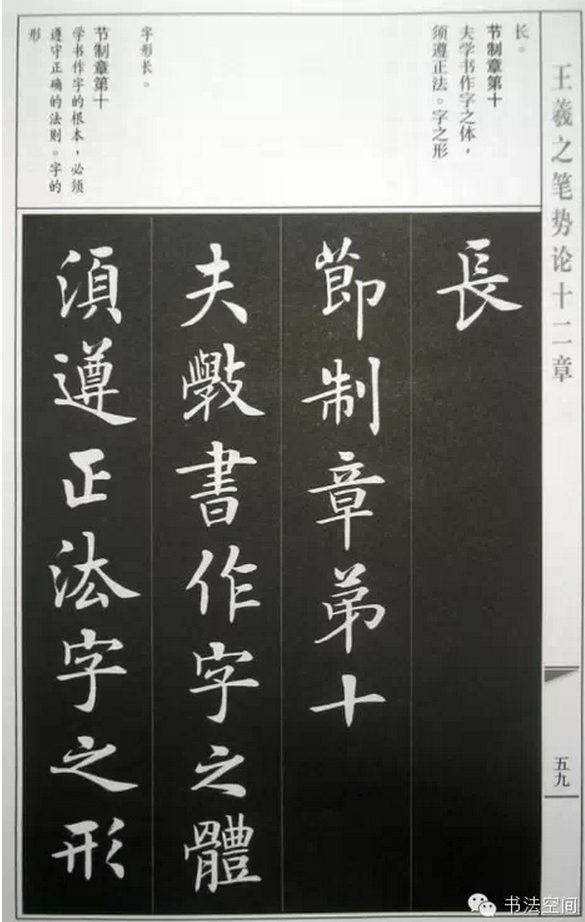 王羲之笔势论十二章
五九
长。
节制章第十
夫学书作字之体，
须遵正法。字之形
字形长。
节制章第十
学书作字的根本，必须
遵守正确的法则。字的
形
長
節制章第十
夫斅書作字之體
須遵正法字之形
书法空间